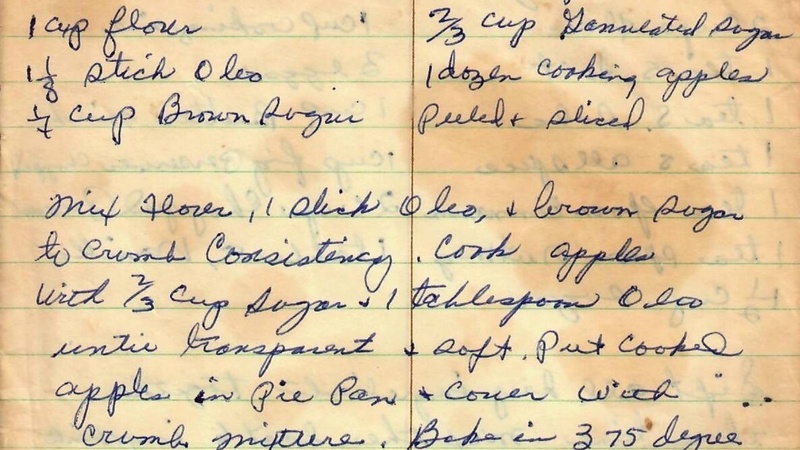 1 cup flour
1 1/8 stick Oleo
1/4 cup Brown Sugar
2/3 cup Granulated Sugar
1 dozen cooking apples
Peeled + sliced.
Mix flour, 1 stick Oleo, + brown sugar
to crumb Consistency. Cook apples
with 2/3 cup sugar + 1 tablespoon Oleo
until transparent + soft. Put cooked
apples in Pie Pan + Cover with
crumb mixture. Bake in 375 degree